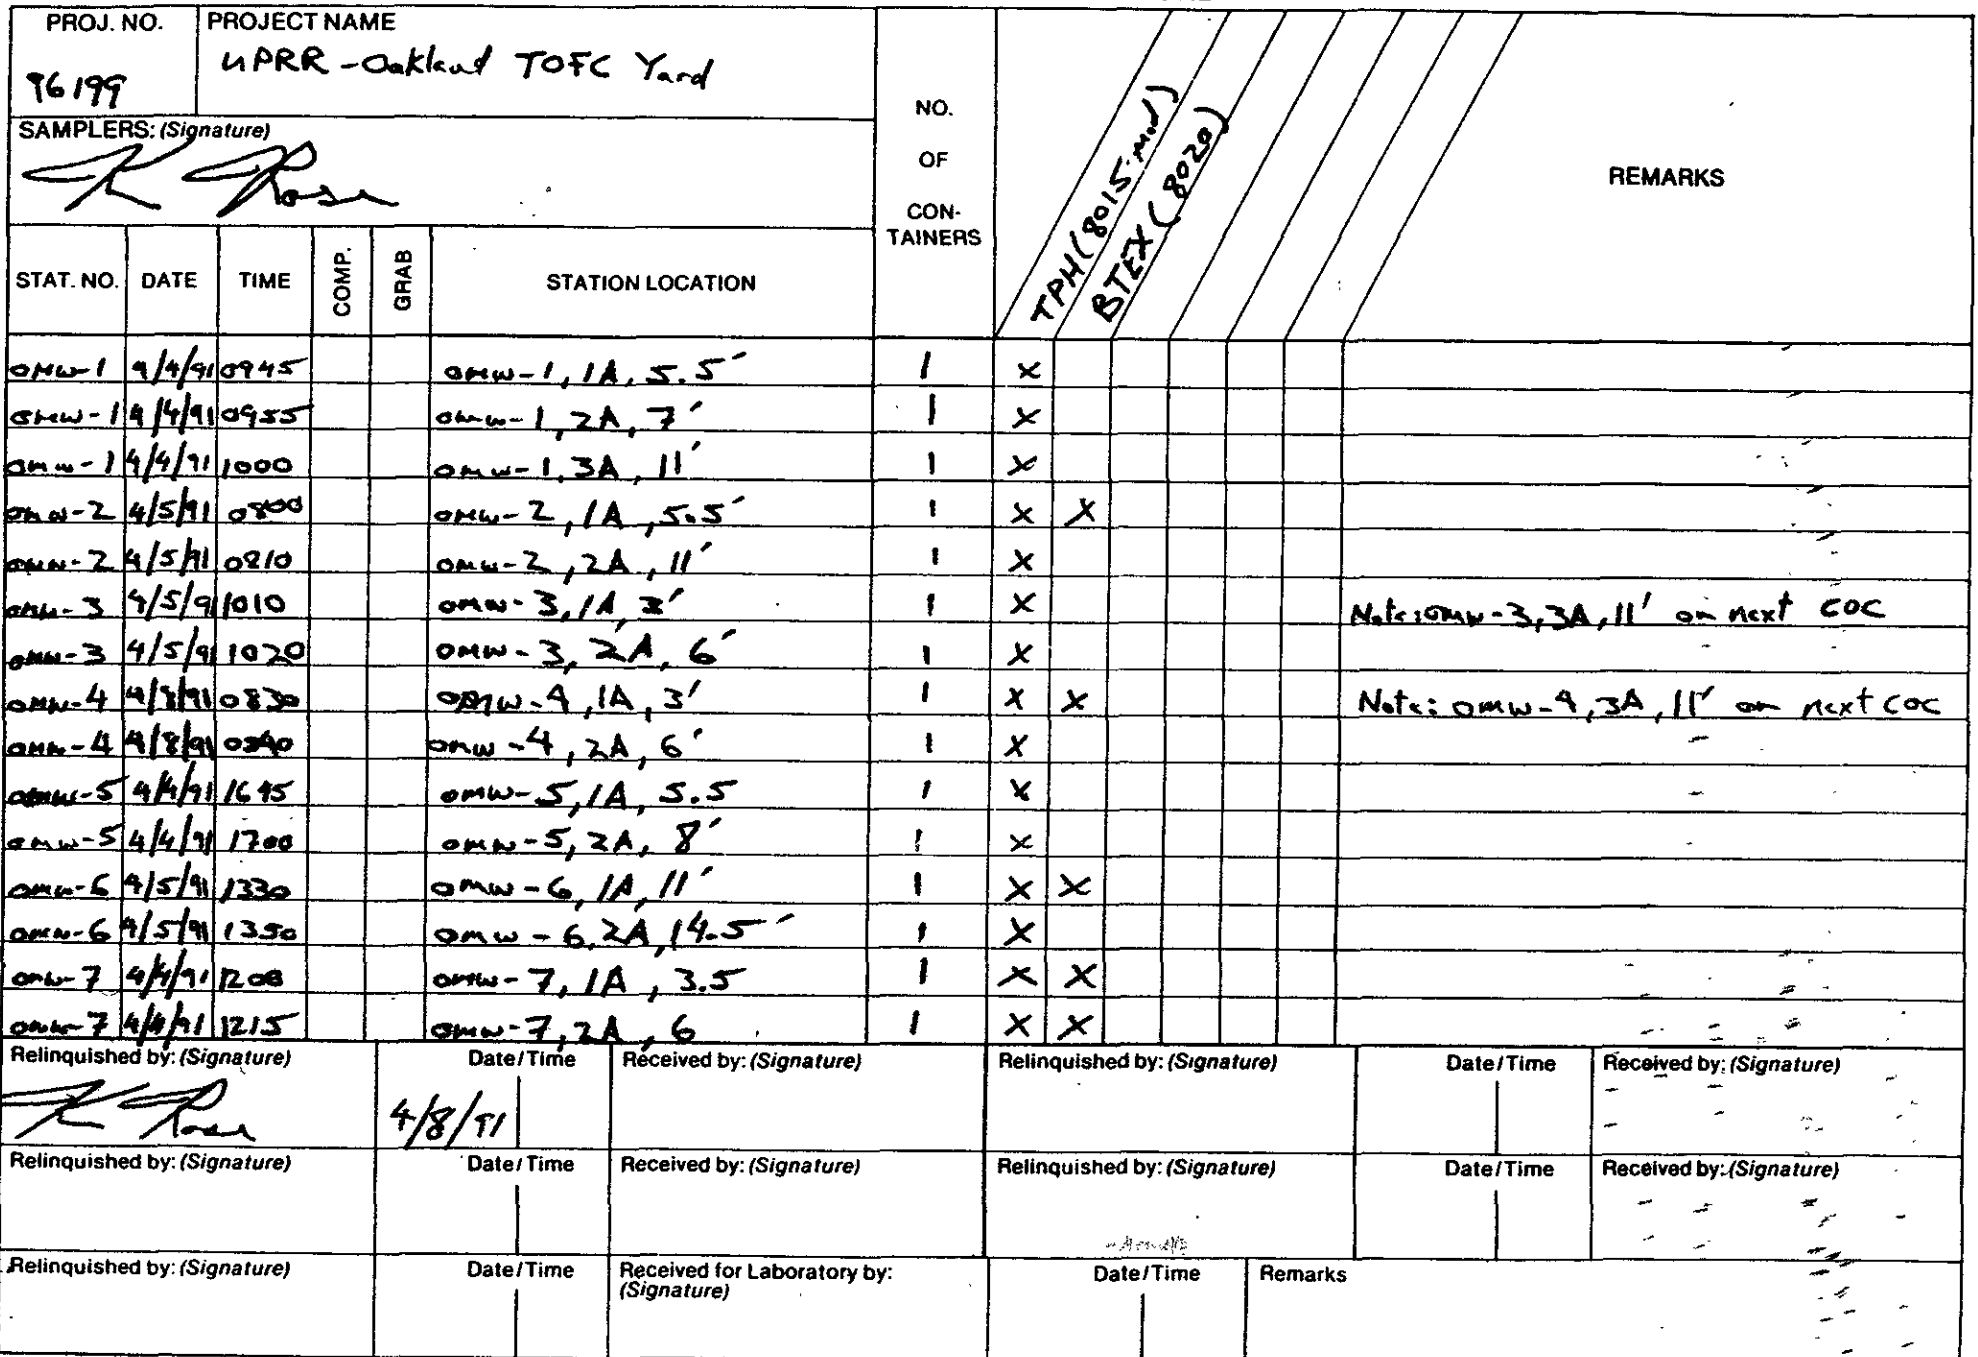 PROJ. NO. PROJECT NAME
96199 UPRR - Oakland TOFC Yard
SAMPLERS: (Signature)
K Rose
NO. OF CON-TAINERS
TPH (8015 mod)
BTEX (8020)
REMARKS
STAT. NO. DATE TIME COMP. GRAB STATION LOCATION
OMW-1 4/4/91 0945 OMW-1, 1A, 5.5' 1 X
OMW-1 4/4/91 0955 OMW-1, 2A, 7' 1 X
OMW-1 4/4/91 1000 OMW-1, 3A, 11' 1 X
OMW-2 4/5/91 0800 OMW-2, 1A, 5.5' 1 X X
OMW-2 4/5/91 0810 OMW-2, 2A, 11' 1 X
OMW-3 4/5/91 1010 OMW-3, 1A, 3' 1 X Note: OMW-3, 3A, 11' on next COC
OMW-3 4/5/91 1020 OMW-3, 2A, 6' 1 X
OMW-4 4/8/91 0830 OMW-4, 1A, 3' 1 X X Note: OMW-4, 3A, 11' on next COC
OMW-4 4/8/91 0840 OMW-4, 2A, 6' 1 X
OMW-5 4/4/91 1645 OMW-5, 1A, 5.5 1 X
OMW-5 4/4/91 1700 OMW-5, 2A, 8' 1 X
OMW-6 4/5/91 1330 OMW-6, 1A, 11' 1 X X
OMW-6 4/5/91 1350 OMW-6, 2A, 14.5' 1 X
OMW-7 4/4/91 1200 OMW-7, 1A, 3.5 1 X X
OMW-7 4/4/91 1215 OMW-7, 2A, 6 1 X X
Relinquished by: (Signature) Date/Time Received by: (Signature) Relinquished by: (Signature) Date/Time Received by: (Signature)
K Rose 4/8/91
Relinquished by: (Signature) Date/Time Received by: (Signature) Relinquished by: (Signature) Date/Time Received by: (Signature)
Relinquished by: (Signature) Date/Time Received for Laboratory by: (Signature) Date/Time Remarks